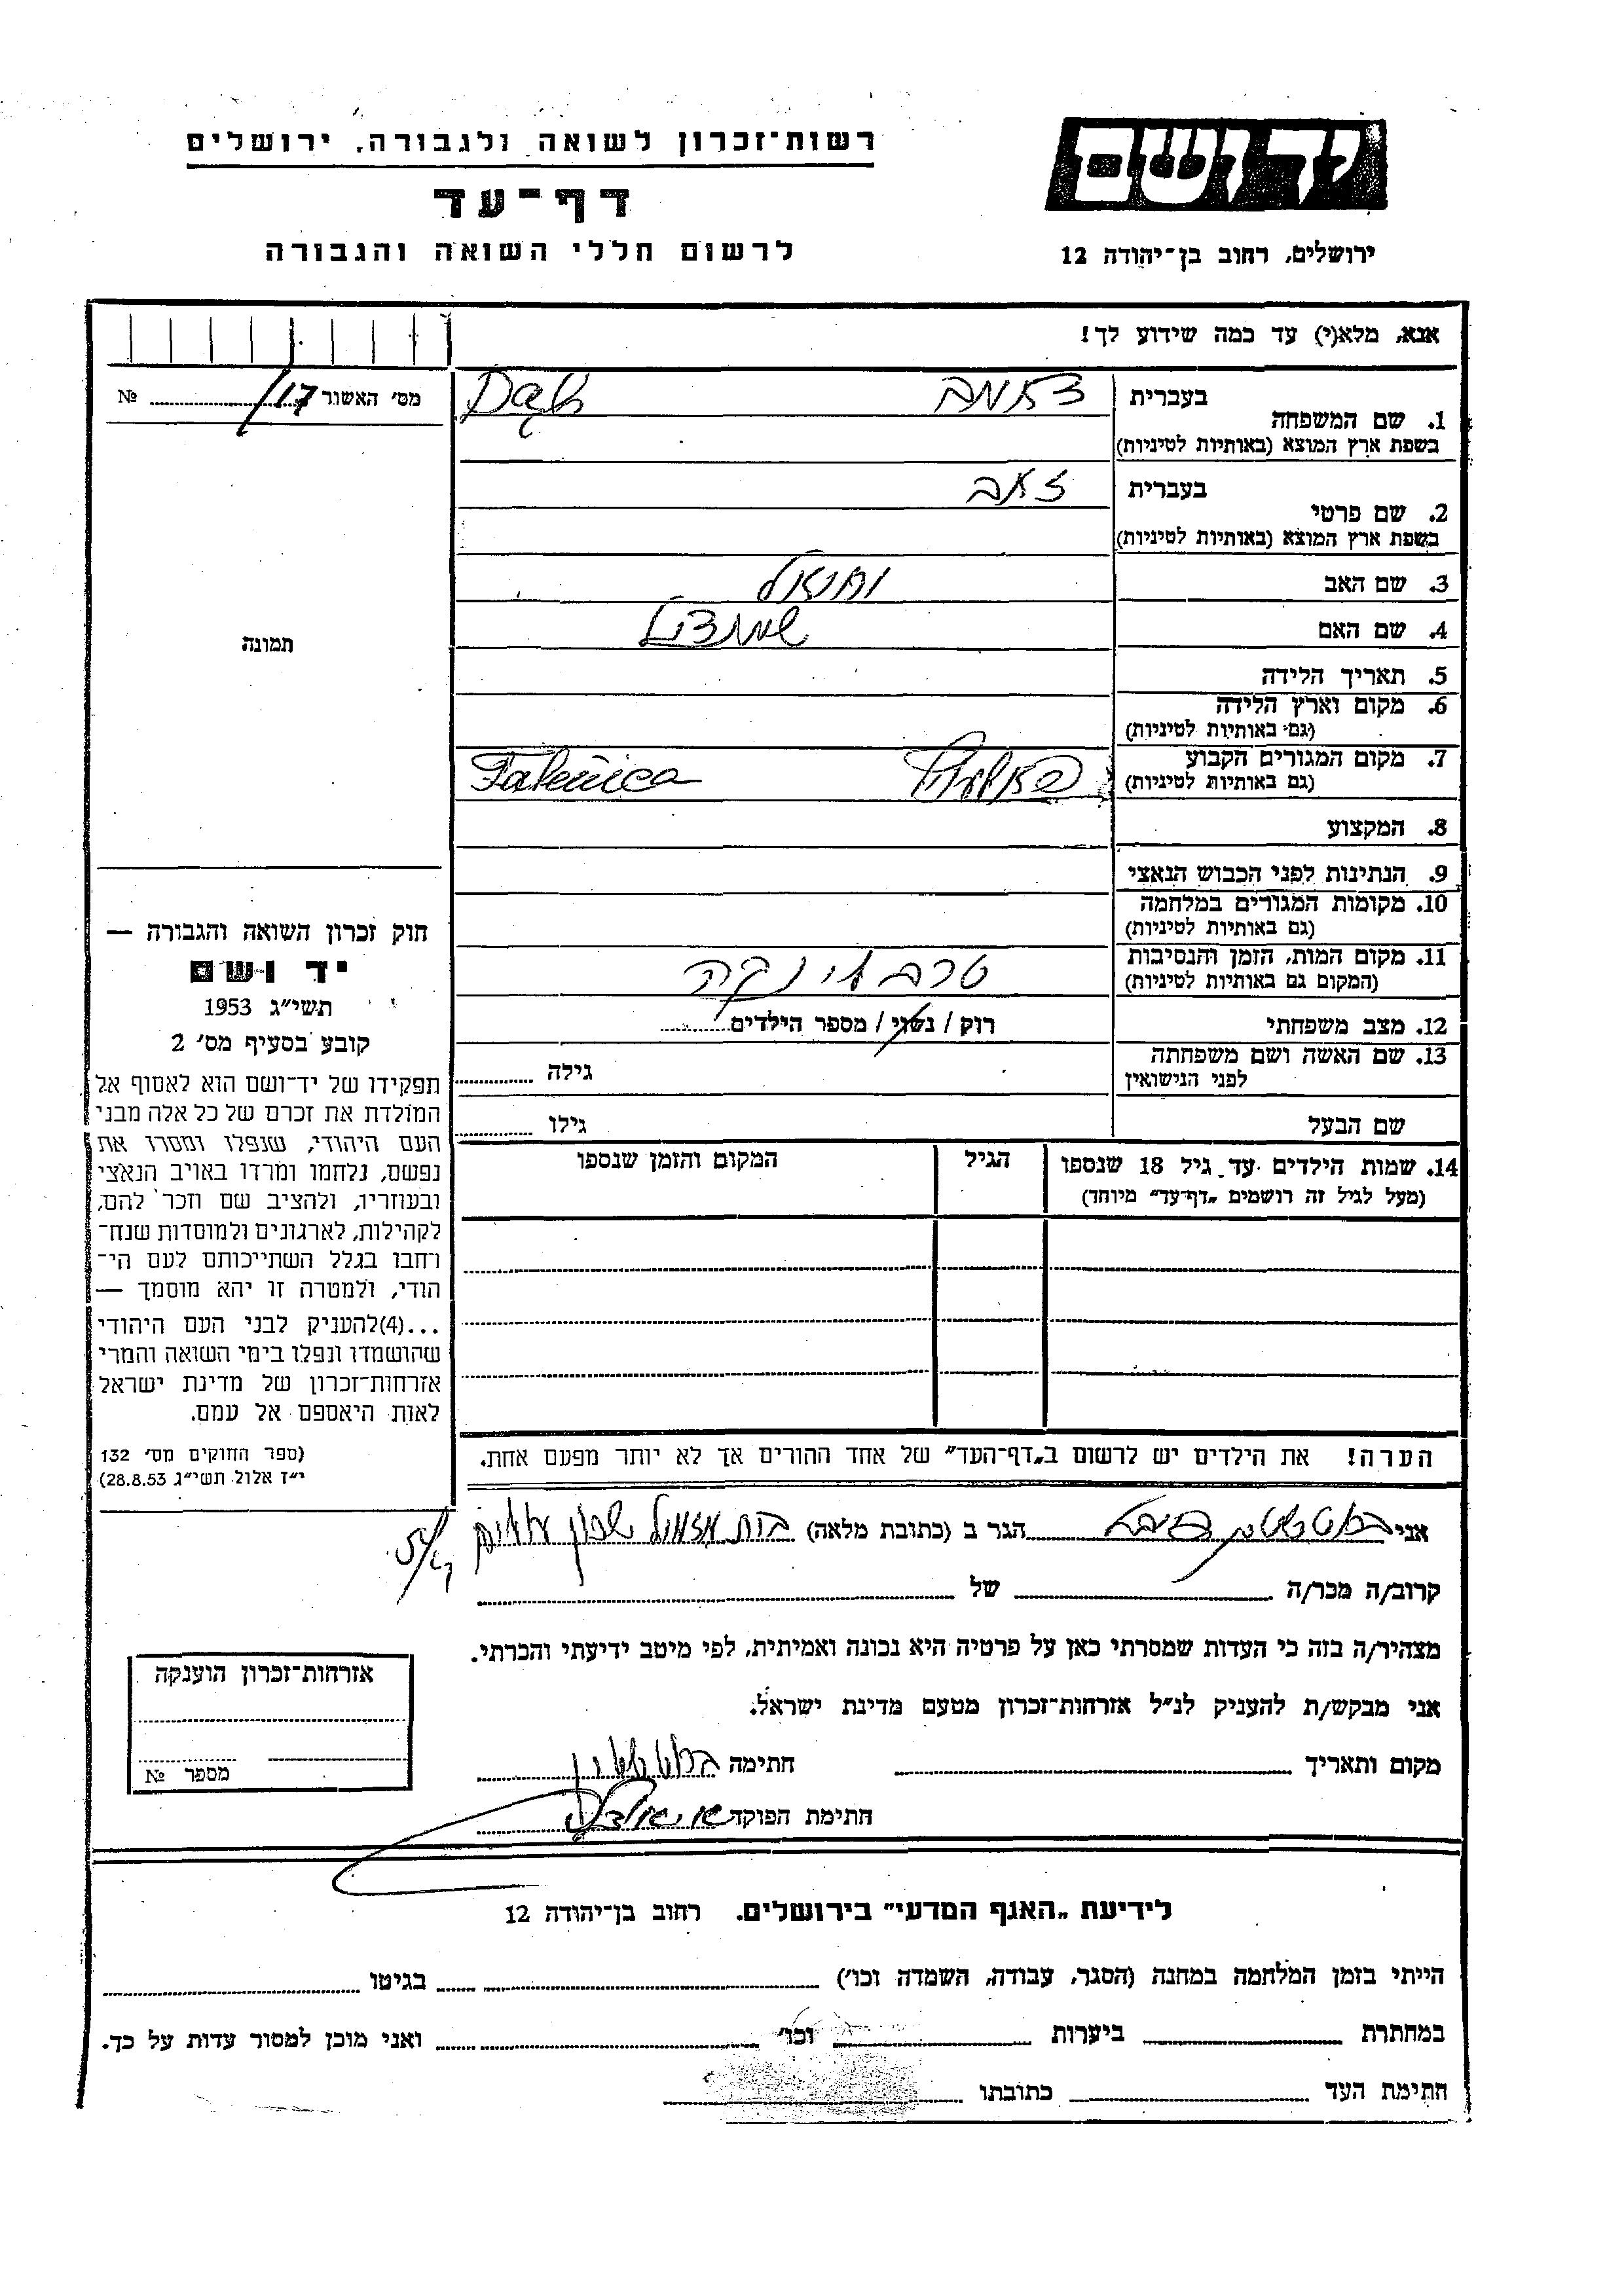 רשות־זכרון לשואה ולגבורה, ירושלים
דף־עד
לרשום חללי השואה והגבורה
יד ושם
ירושלים, רחוב בן־יהודה 12
אנא, מלא(י) עד כמה שידוע לך!
מס׳ האשור 17/ №
תמונה
1. שם המשפחה בעברית
בשפת ארץ המוצא (באותיות לטיניות)
2. שם פרטי בעברית זאב
בשפת ארץ המוצא (באותיות לטיניות)
3. שם האב
4. שם האם
5. תאריך הלידה
6. מקום וארץ הלידה
(גם באותיות לטיניות)
7. מקום המגורים הקבוע Falenica
(גם באותיות לטיניות)
8. המקצוע
9. הנתינות לפני הכבוש הנאצי
10. מקומות המגורים במלחמה
(גם באותיות לטיניות)
11. מקום המות, הזמן והנסיבות טרבלינקה
(המקום גם באותיות לטיניות)
12. מצב משפחתי רוק / נשוי / מספר הילדים
13. שם האשה ושם משפחתה
לפני הנישואין גילה
שם הבעל גילו
14. שמות הילדים עד גיל 18 שנספו הגיל המקום והזמן שנספו
(מעל לגיל זה רושמים „דף־עד״ מיוחד)
הערה! את הילדים יש לרשום ב„דף־העד״ של אחד ההורים אך לא יותר מפעם אחת.
חוק זכרון השואה והגבורה —
יד ושם
תשי״ג 1953
קובע בסעיף מס׳ 2
תפקידו של יד־ושם הוא לאסוף אל
המולדת את זכרם של כל אלה מבני
העם היהודי, שנפלו ומסרו את
נפשם, נלחמו ומרדו באויב הנאצי
ובעוזריו, ולהציב שם וזכר להם,
לקהילות, לארגונים ולמוסדות שנח־
רחבו בגלל השתייכותם לעם הי־
הודי, ולמטרה זו יהא מוסמך —
...(4)להעניק לבני העם היהודי
שהושמדו ונפלו בימי השואה והמרי
אזרחות־זכרון של מדינת ישראל
לאות היאספם אל עמם.
(ספר החוקים מס׳ 132
י״ז אלול תשי״ג 28.8.53)
אני הגר ב (כתובת מלאה)
קרוב/ה מכר/ה של
מצהיר/ה בזה כי העדות שמסרתי כאן על פרטיה היא נכונה ואמיתית, לפי מיטב ידיעתי והכרתי.
אני מבקש/ת להעניק לנ״ל אזרחות־זכרון מטעם מדינת ישראל.
מקום ותאריך חתימה
חתימת הפוקד
אזרחות־זכרון הוענקה
מספר №
לידיעת „האגף המדעי״ בירושלים. רחוב בן־יהודה 12
הייתי בזמן המלחמה במחנה (הסגר, עבודה, השמדה וכו׳) בגיטו
במחתרת ביערות וכו׳ ואני מוכן למסור עדות על כך.
חתימת העד כתובתו